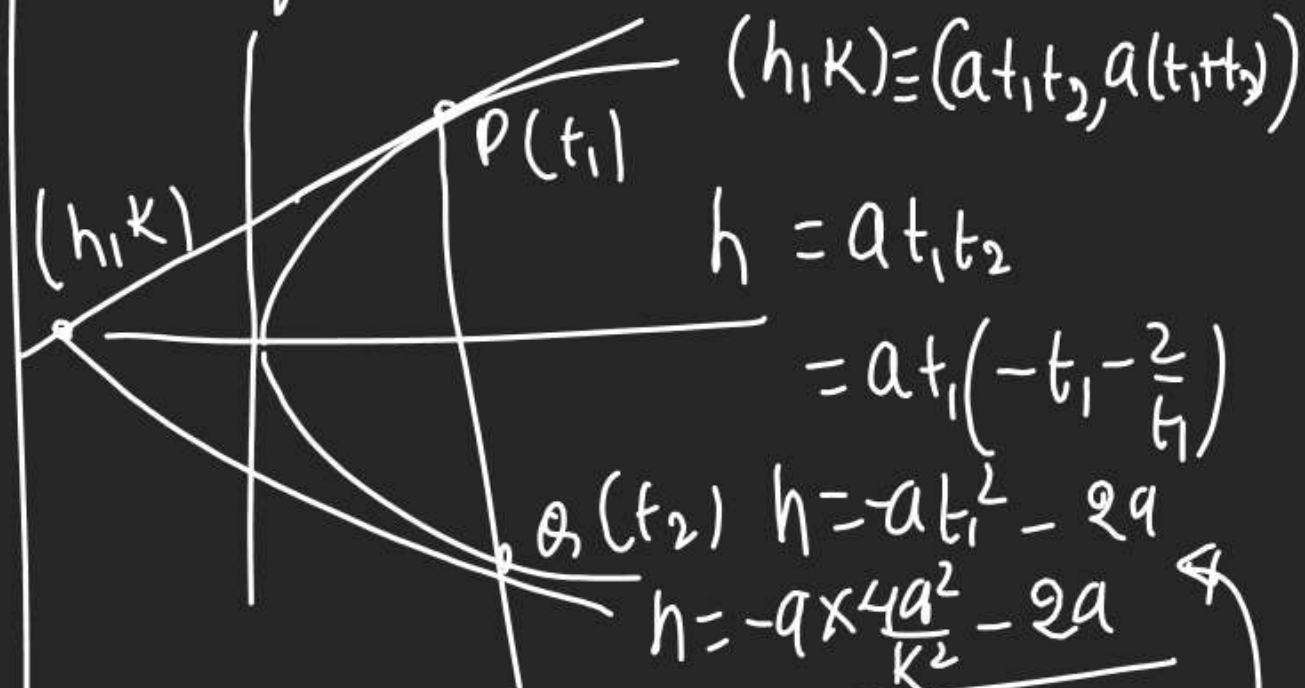 (h,K)≡(at₁t₂,a(t₁+t₂))
P(t₁)
(h,K)
h = at₁t₂
= at₁(-t₁-2/t₁)
Q(t₂) h=-at₁²-2a
h=-a×4a²/K²-2a